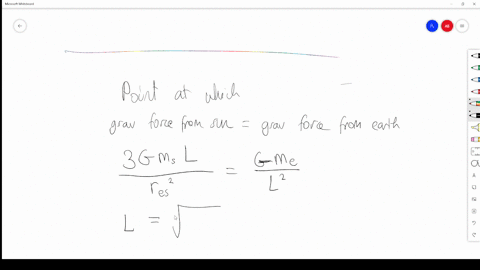 Microsoft Whiteboard
Point at which
grav force from sun = grav force from earth
3 G m_s L / r_es^2 = G m_e / L^2
L = ∛